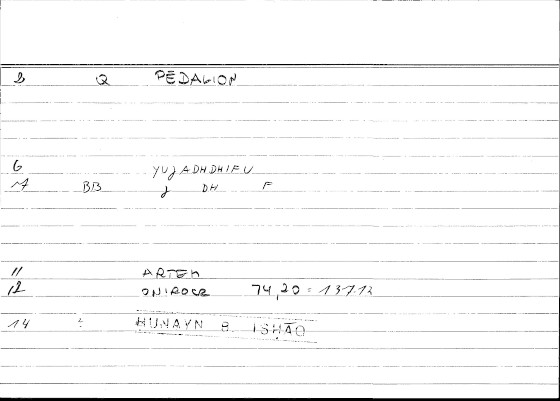 2 Q PĒDALION
6 YUJADHDHIFU
BB J DH F
11 ARTEM
12 ONIROCR 74,20 = 137,12
14 : ḤUNAYN B. ISḤĀQ